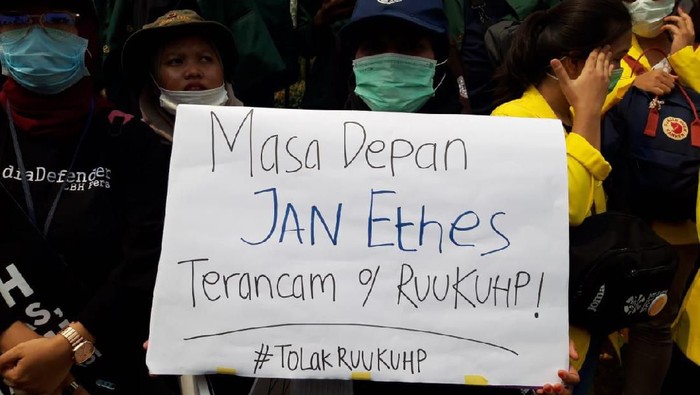 Masa Depan
JAN Ethes
Terancam o/ RUUKUHP!
#TOLAKRUUKUHP
diaDefender
LBH Pers